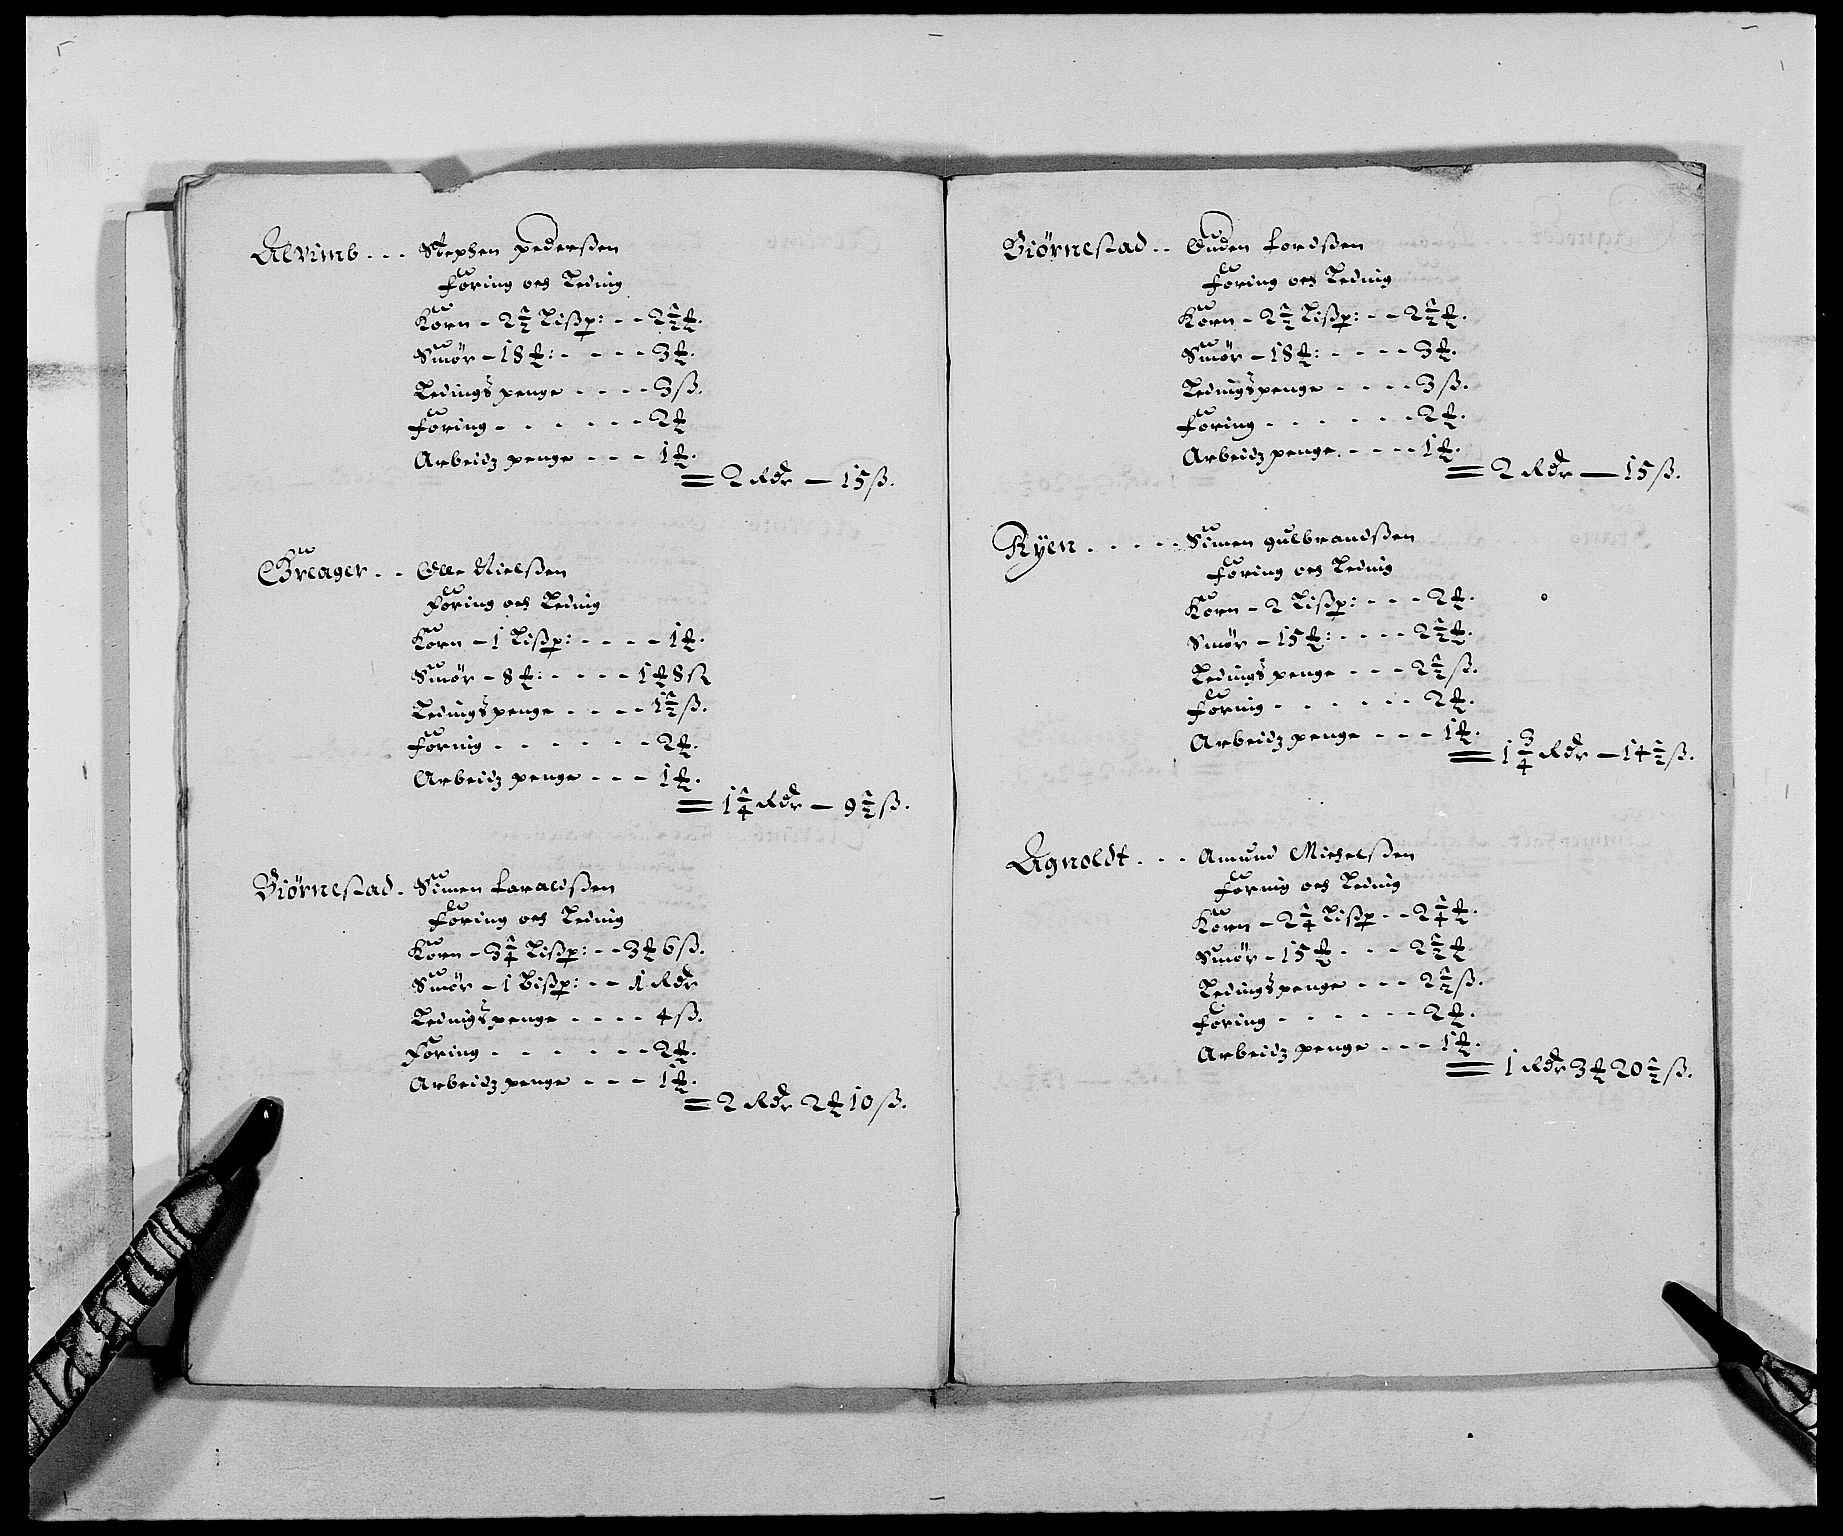 Alvimb - - - Stephen Pederßen
Foring och Leding
Korn - 2½ Lißp: - - 2½ ₰.
Smör - 18 ₰: - - - - 3 ₰.
Ledingspenge - - - - 3 ß.
Foring - - - - - - 2 ₰
Arbeidz penge - - - 1 ₰.
= 2 Rdr — 15 ß.
Greager - - Olle Nielßen
Foring och Leding
Korn - 1 Lißp: - - - - 1 ₰.
Smör - 8 ₰: - - - - 1 ₰ 8 ß
Ledingspenge - - - - 1½ ß.
Foring - - - - - - 2 ₰.
Arbeidz penge - - - 1 ₰.
= 1¼ Rdr — 9½ ß.
Biørnestad - Simen Laraldßen
Foring och Leding
Korn - 3¼ Lißp: - - 3 ₰ 6 ß.
Smör - 1 Lißp: - - 1 Rdr
Ledingspenge - - - - 4 ß.
Foring - - - - - - 2 ₰.
Arbeidz penge - - - 1 ₰.
= 2 Rdr 2 ₰ 10 ß.
Biørnestad - - Guden Lordßen
Foring och Leding
Korn - 2½ Lißp: - - 2½ ₰.
Smör - 18 ₰: - - - - 3 ₰.
Ledingspenge - - - - 3 ß.
Foring - - - - - - 2 ₰.
Arbeidz penge - - - - 1 ₰.
= 2 Rdr — 15 ß.
Rÿen - - - - - Simen gulbrandßen
Foring och Leding
Korn - 2 Lißp: - - - 2 ₰.
Smör - 15 ₰: - - - - 2½ ₰.
Ledingspenge - - - 2½ ß.
Foring - - - - - - 2 ₰.
Arbeidz penge - - - 1 ₰.
= 1¾ Rdr — 14½ ß.
Agnoldt - - - Amund Michelßen
Foring och Leding
Korn - 2¼ Lißp - - 2¼ ₰.
Smör - 15 ₰ - - - 2½ ₰
Ledingspenge - - - 2½ ß.
Foring - - - - - - 2 ₰.
Arbeidz penge - - - 1 ₰.
= 1 Rdr 3 ₰ 20½ ß.